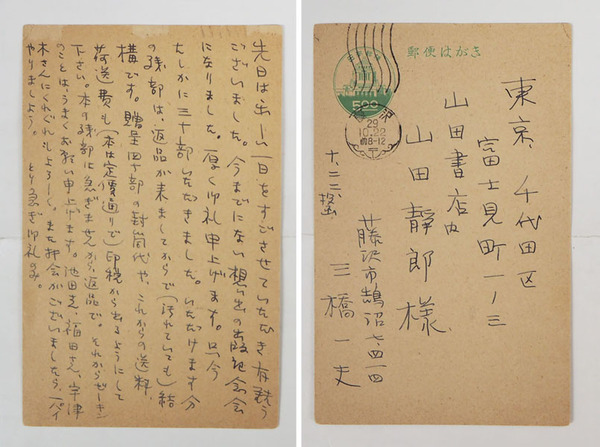 先日は楽しい一日をすごさせていただき有難う
ございました。今までにない想い出の出版記念会
になりました。厚く御礼申上げます。只今
たしかに三十部いただきました。いただけます分
の残部は、返品が来ましてからで（汚れていても）結
構です。贈呈四十部の封筒代や、これからの送料、
荷送費も（本は定價通りで）印税から出るようにして
下さい。本の残部は急ぎませんから、返品で。それからゼーキン
のことは、うまくお願い申上げます。池田さん、福田さん、宇津
木さんにくれぐれもよろしく。また機会がございましたら、一パイ
やりましょう。　とり急ぎ御礼のみ。
郵便はがき
500
29
10.22
前8-12
東京、千代田区
富士見町一ノ三
山田書店内
山田静郎様
十、二二、
藤沢市鵠沼七四一四
三橋一夫